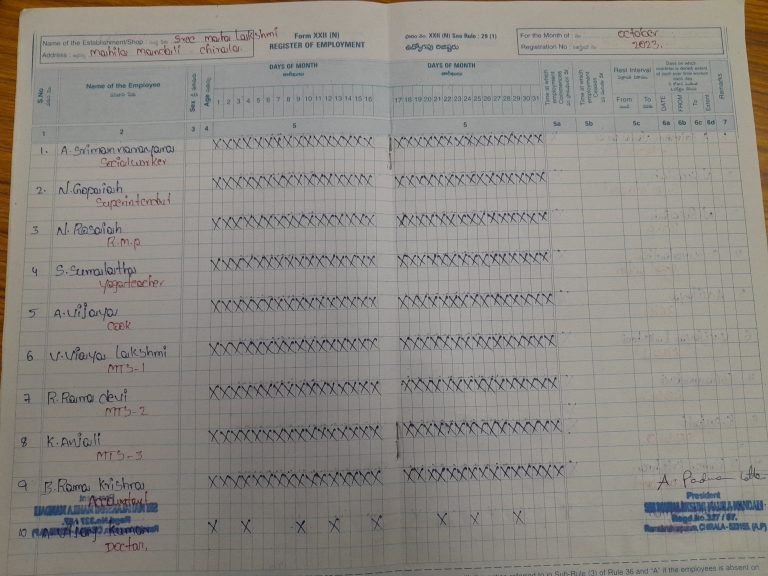 Name of the Establishment/Shop : Sree mata lakshmi
Address : mahila mandali - chirala
Form XXII (N)
REGISTER OF EMPLOYMENT
XXII (N) See Rule : 29 (1)
ఉద్యోగపు రిజిష్టరు
For the Month of : october
Registration No : 2023.
S.No
Name of the Employee
Sex
Age
DAYS OF MONTH
1 2 3 4 5 6 7 8 9 10 11 12 13 14 15 16
DAYS OF MONTH
17 18 19 20 21 22 23 24 25 26 27 28 29 30 31
Time at which employment Commences
Time at which employment Ceases
Rest Interval
From To
DATE
FROM
To
Extent
Remarks
1 2 3 4 5 5 5a 5b 5c 6a 6b 6c 6d 7
1. A. Srimannarayana XXXXXXXXXXXXXXXX XXXXXXXXXXXXXXX
Socialworker
2. N. Gopaiah XXXXXXXXXXXXXXXX XXXXXXXXXXXXXXX
Superintendent
3 N. Rosaiah XXXXXXXXXXXXXXXX XXXXXXXXXXXXXXX
R.M.P
4 S. Sumalatha XXXXXXXXXXXXXXXX XXXXXXXXXXXXXXX
Yogateacher
5 A. Vijaya XXXXXXXXXXXXXXXX XXXXXXXXXXXXXXX
Cook
6 V. Vijaya lakshmi XXXXXXXXXXXXXXXX XXXXXXXXXXXXXXX
MTS-1
7 R. Rama devi XXXXXXXXXXXXXXXX XXXXXXXXXXXXXXX
MTS-2
8 K. Anjali XXXXXXXXXXXXXXXX XXXXXXXXXXXXXXX
MTS-3
9 B. Rama Krishna XXXXXXXXXXXXXXXX XXXXXXXXXXXXXXX
Accountant
A. Padma
President
Regd.No.327 / 97.
CHIRALA - 523155. (A.P)
10 Kumar X X X X X X X X
Doctor.
referred to in Sub-Rule (3) of Rule 36 and "A" if the employees is absent on